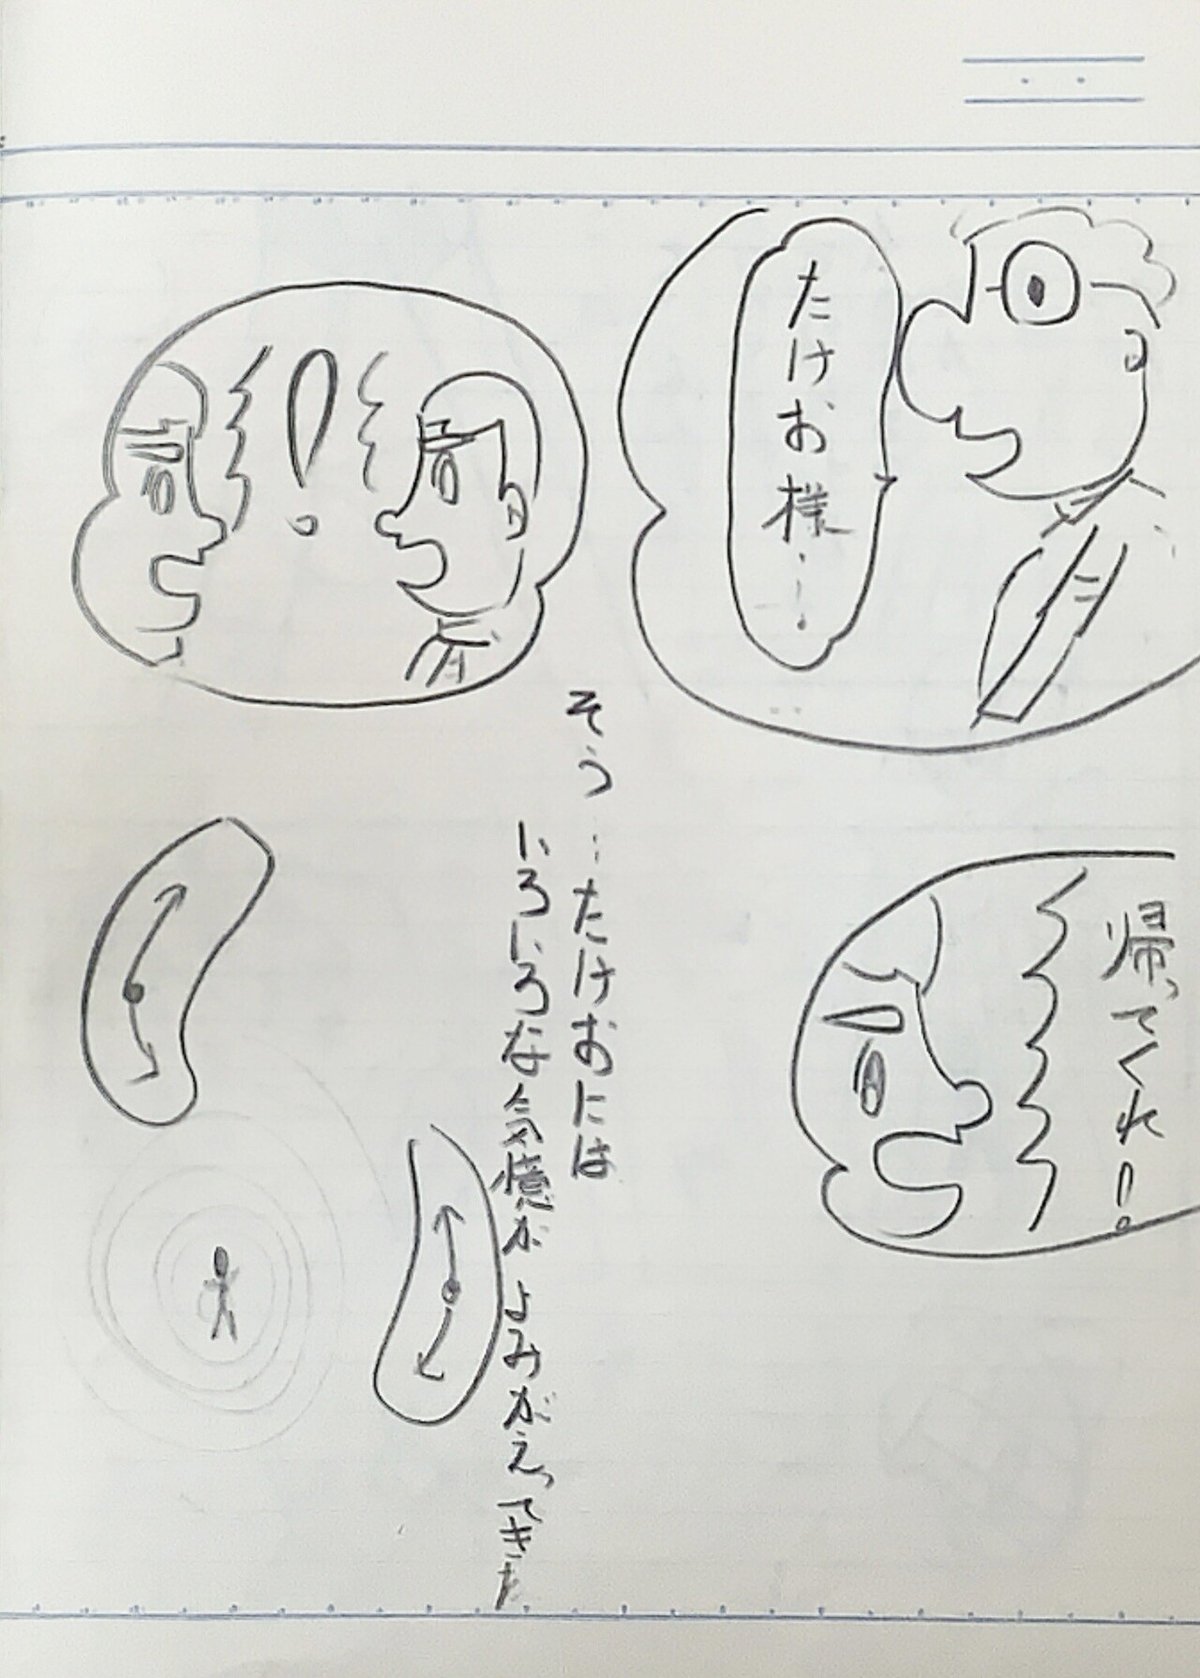 たけお様…
帰ってくれ!
!
そう…たけおには
いろいろな気憶が よみがえってきた